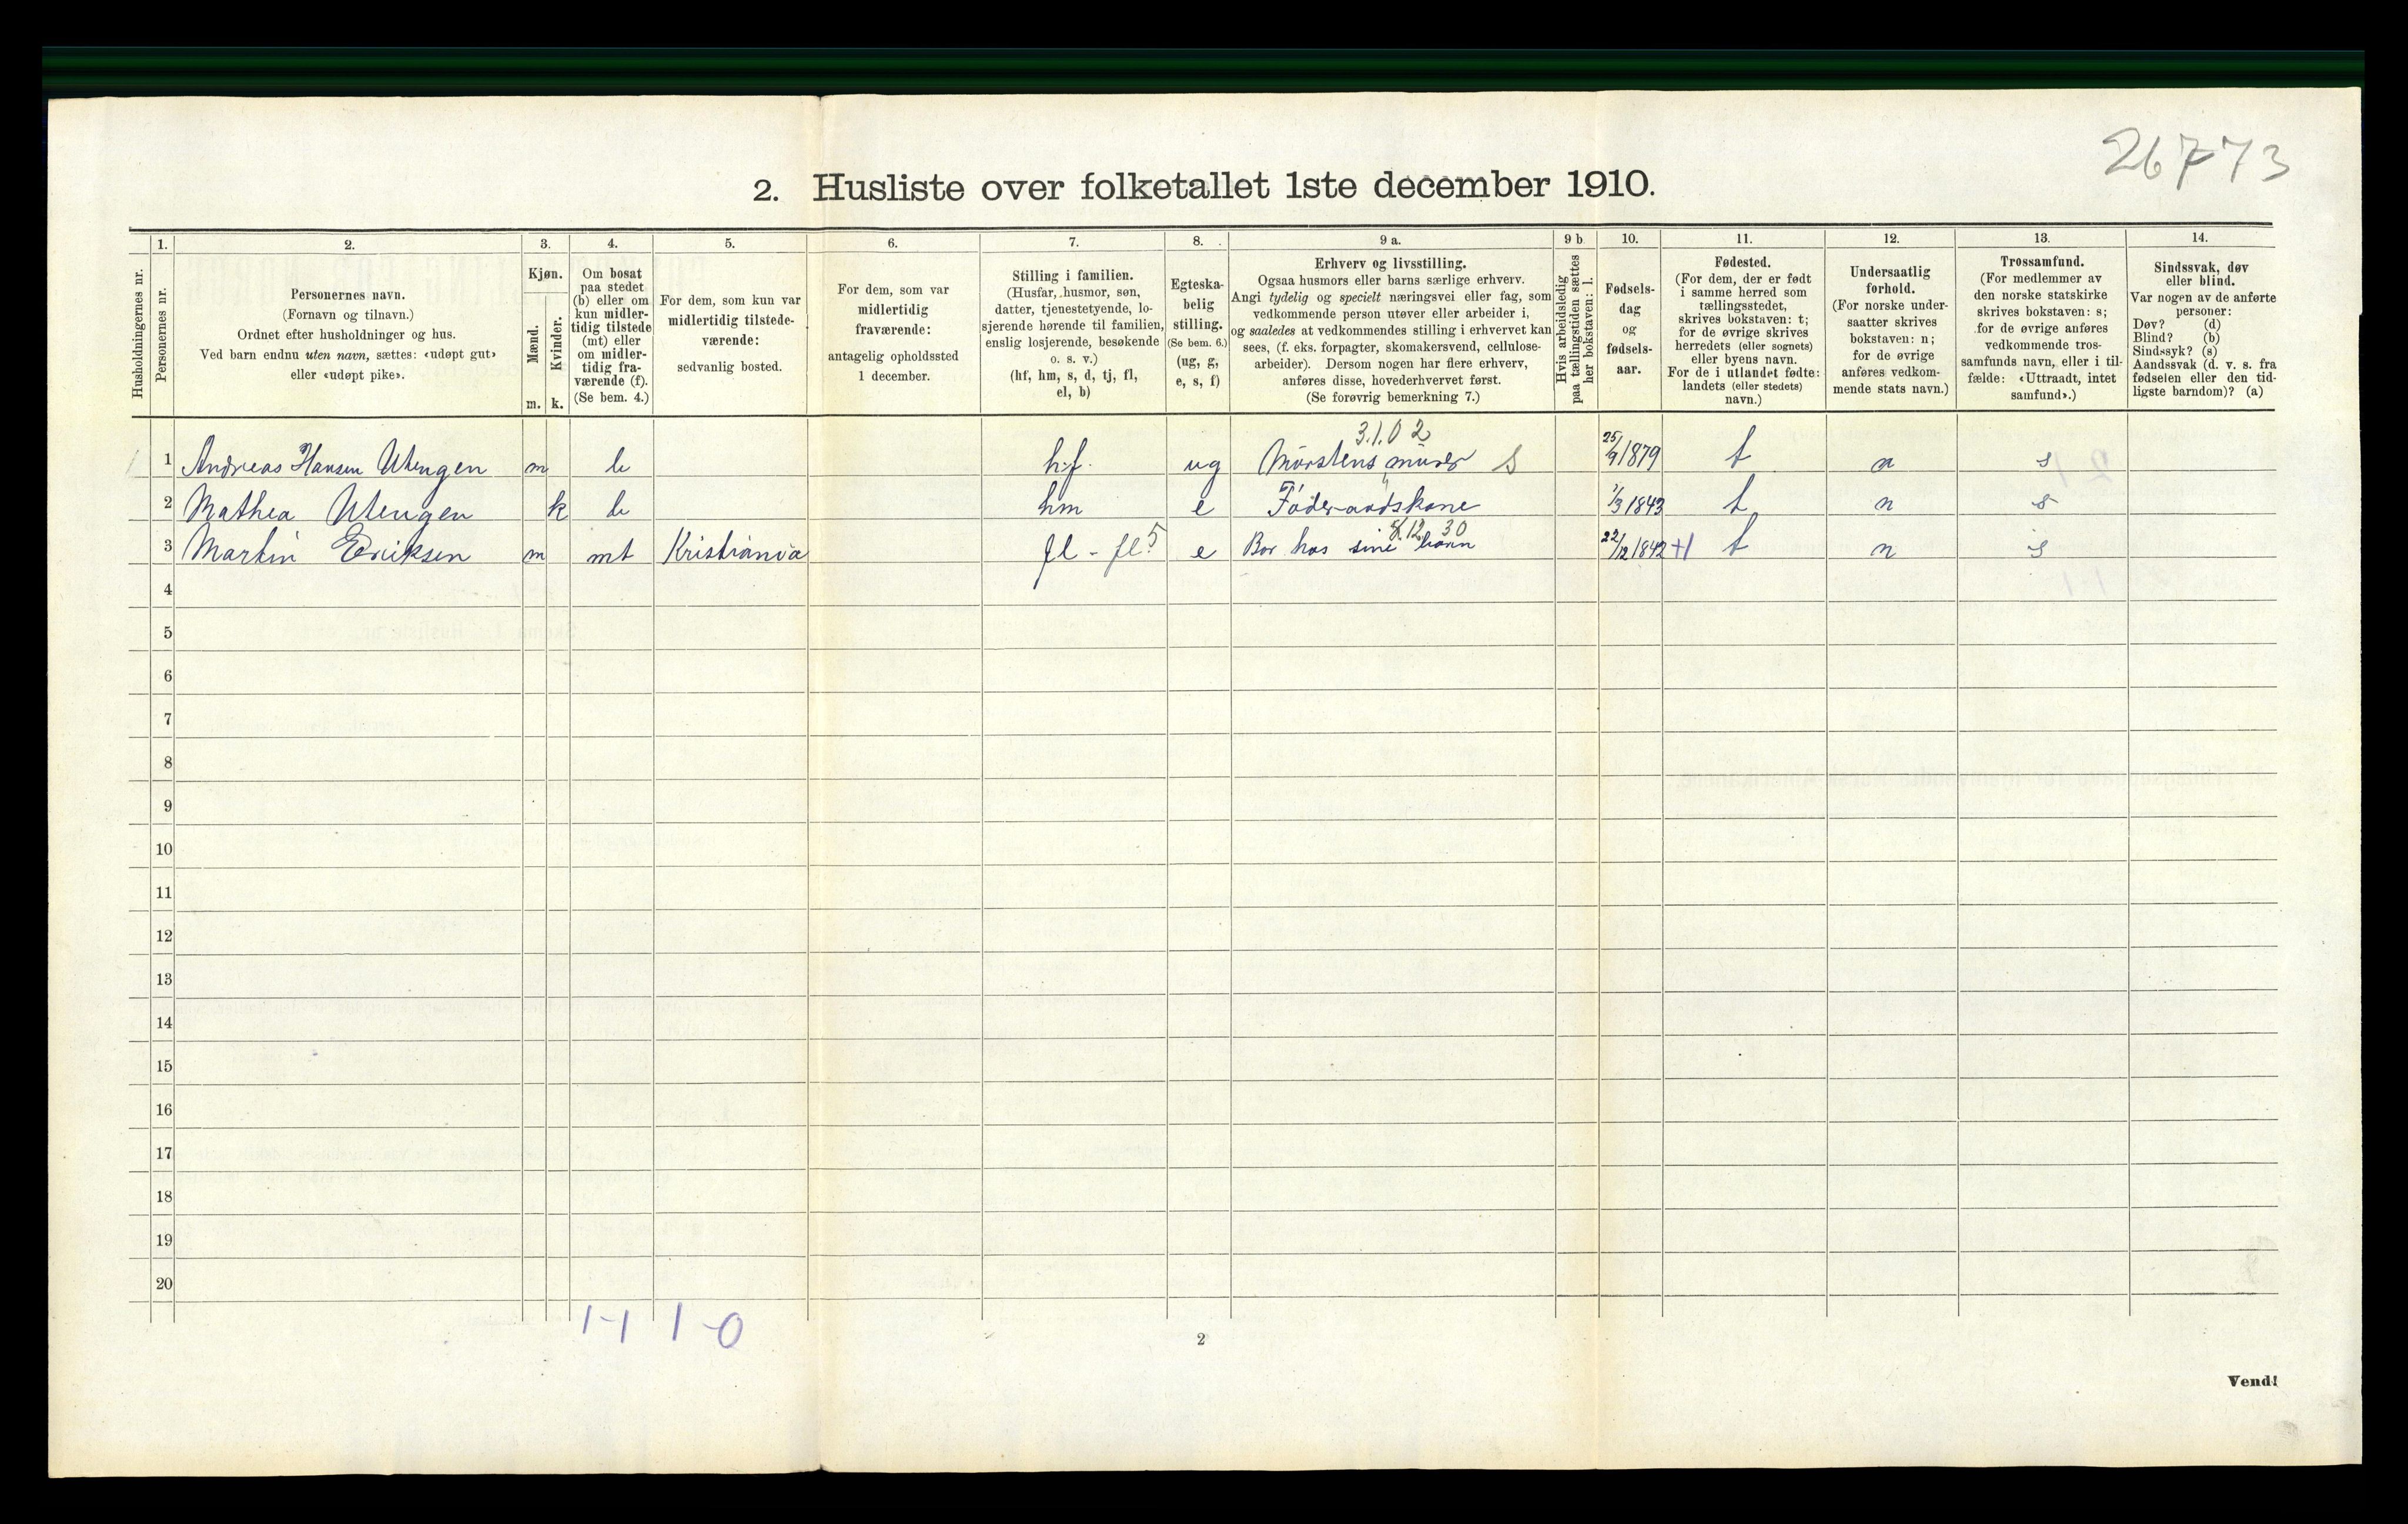 26773
2. Husliste over folketallet 1ste december 1910.
Husholdningernes nr.
1.
Personernes nr.
2.
Personernes navn.
(Fornavn og tilnavn.)
Ordnet efter husholdninger og hus.
Ved barn endnu uten navn, sættes: «udøpt gut»
eller «udøpt pike».
3.
Kjøn.
Mænd.
Kvinder.
m. k.
4.
Om bosat
paa stedet
(b) eller om
kun midler-
tidig tilstede
(mt) eller
om midler-
tidig fra-
værende (f).
(Se bem. 4.)
5.
For dem, som kun var
midlertidig tilstede-
værende:
sedvanlig bosted.
6.
For dem, som var
midlertidig
fraværende:
antagelig opholdssted
1 december.
7.
Stilling i familien.
(Husfar, husmor, søn,
datter, tjenestetyende, lo-
sjerende hørende til familien,
enslig losjerende, besøkende
o. s. v.)
(hf, hm, s, d, tj, fl,
el, b)
8.
Egteska-
belig
stilling.
(Se bem. 6.)
(ug, g,
e, s, f)
9 a.
Erhverv og livsstilling.
Ogsaa husmors eller barns særlige erhverv.
Angi tydelig og specielt næringsvei eller fag, som
vedkommende person utøver eller arbeider i,
og saaledes at vedkommendes stilling i erhvervet kan
sees, (f. eks. forpagter, skomakersvend, cellulose-
arbeider). Dersom nogen har flere erhverv,
anføres disse, hovederhvervet først.
(Se forøvrig bemerkning 7.)
9 b
Hvis arbeidsledig
paa tællingstiden sættes
her bokstaven: l.
10.
Fødsels-
dag
og
fødsels-
aar.
11.
Fødested.
(For dem, der er født
i samme herred som
tællingsstedet,
skrives bokstaven: t;
for de øvrige skrives
herredets (eller sognets)
eller byens navn.
For de i utlandet fødte:
landets (eller stedets)
navn.)
12.
Undersaatlig
forhold.
(For norske under-
saatter skrives
bokstaven: n;
for de øvrige
anføres vedkom-
mende stats navn.)
13.
Trossamfund.
(For medlemmer av
den norske statskirke
skrives bokstaven: s;
for de øvrige anføres
vedkommende tros-
samfunds navn, eller i til-
fælde: «Uttraadt, intet
samfund».)
14.
Sindssvak, døv
eller blind.
Var nogen av de anførte
personer:
Døv? (d)
Blind? (b)
Sindssyk? (s)
Aandssvak (d. v. s. fra
fødselen eller den tid-
ligste barndom)? (a)
3.1.02
1 Andreas Hansen Utengen m b hf. ug Murstens murer S 25/9 1879 t n s
2 Mathea Utengen k b hm e Føderaadskone 1/3 1843 t n s
8.12.30
3 Martin Eriksen m mt Kristiania fl - fl 5 e Bor hos sine barn 22/12 1842 +1 t n s
4
5
6
7
8
9
10
11
12
13
14
15
16
17
18
19
20
1-1 1-0
2
Vend!